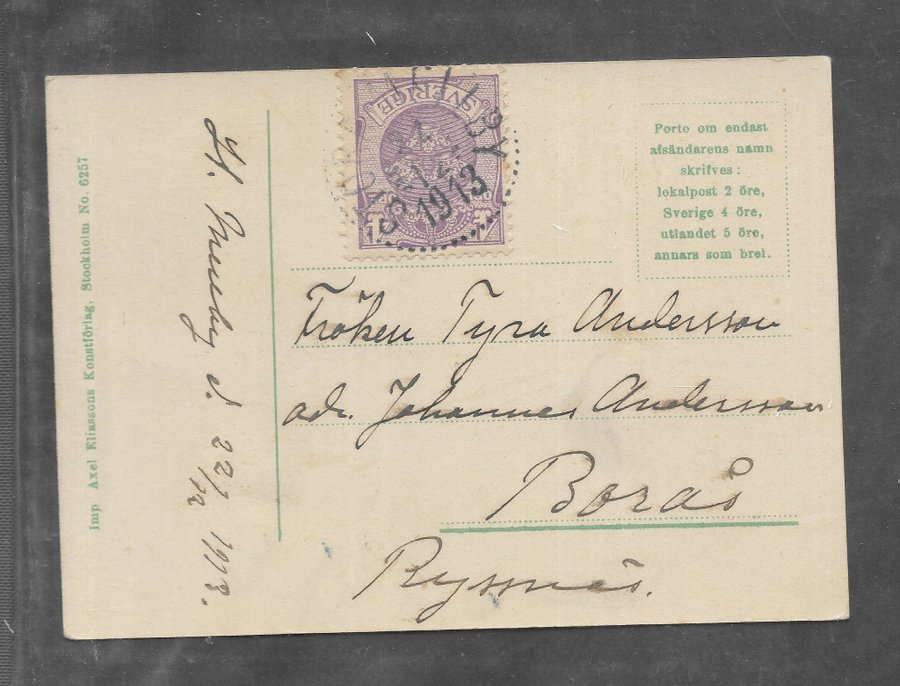 Imp Axel Eliassons Konstförlag, Stockholm No. 6257
d. 22/12 1913.
SVERIGE
1913
Porto om endast
afsändarens namn
skrifves:
lokalpost 2 öre,
Sverige 4 öre,
utlandet 5 öre,
annars som bref.
Fröken Tyra Andersson
adr. Johannes Andersson
Borås
Rysnäs.